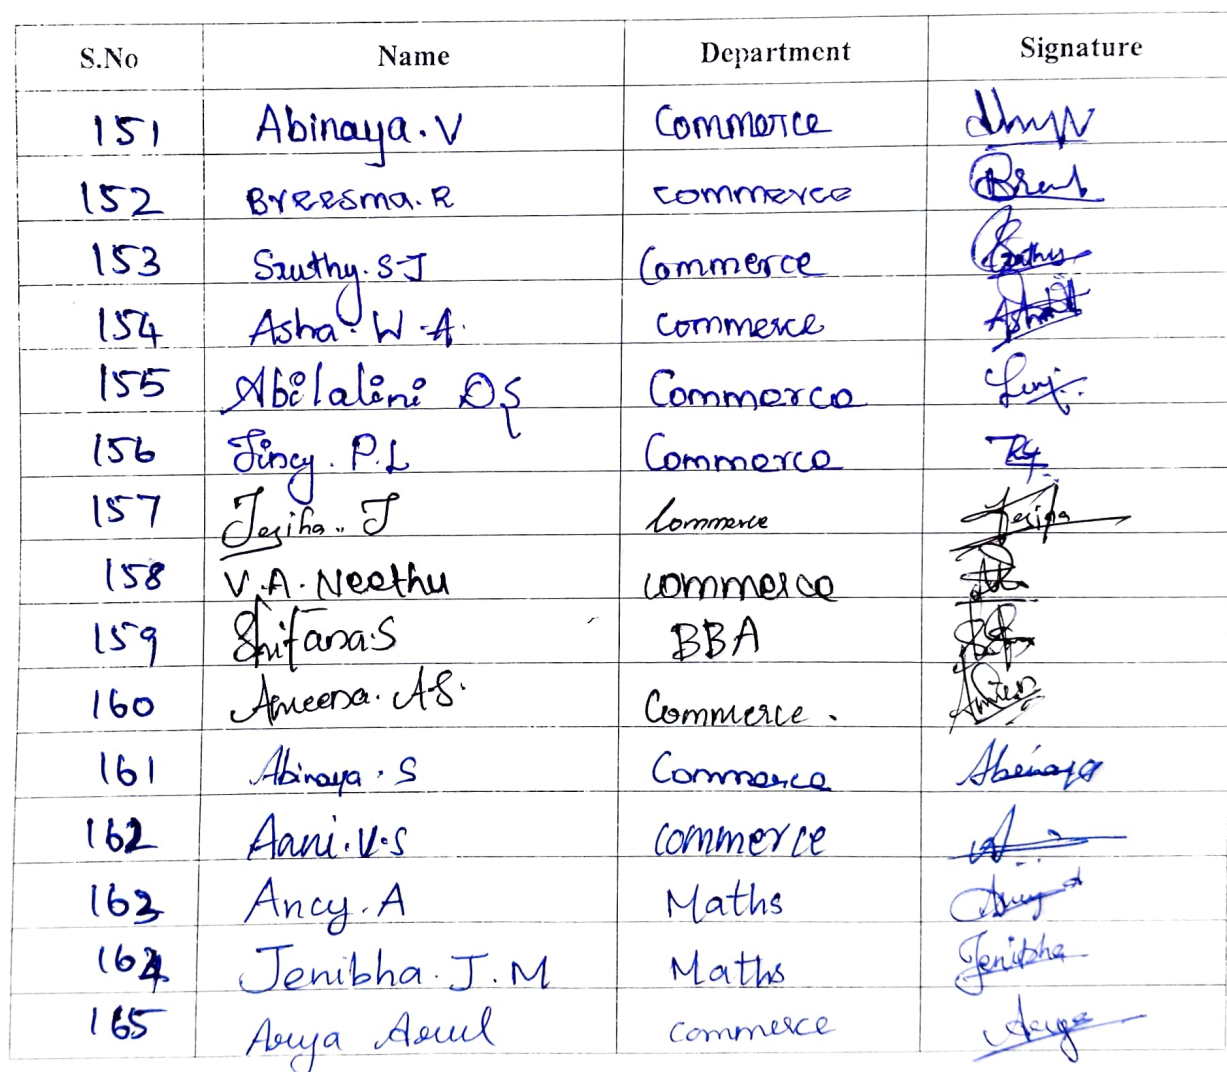 S.No Name Department Signature
151 Abinaya.V Commerce
152 Breesma.R commerce
153 Sruthy.S J Commerce
154 Asha.W.A. commerce
155 Commerce
156 Jincy.P.L Commerce
157 Jesiha..J Commerce Jesiha
158 V.A.Neethu commerce
159 Shifana.S BBA
160 Ameena.A.S. Commerce.
161 Abinaya.S Commerce Abinaya
162 Aani.V.S commerce
163 Ancy.A Maths Ancy
164 Jenibha.J.M Maths Jenibha
165 Arya Arul commerce Arya